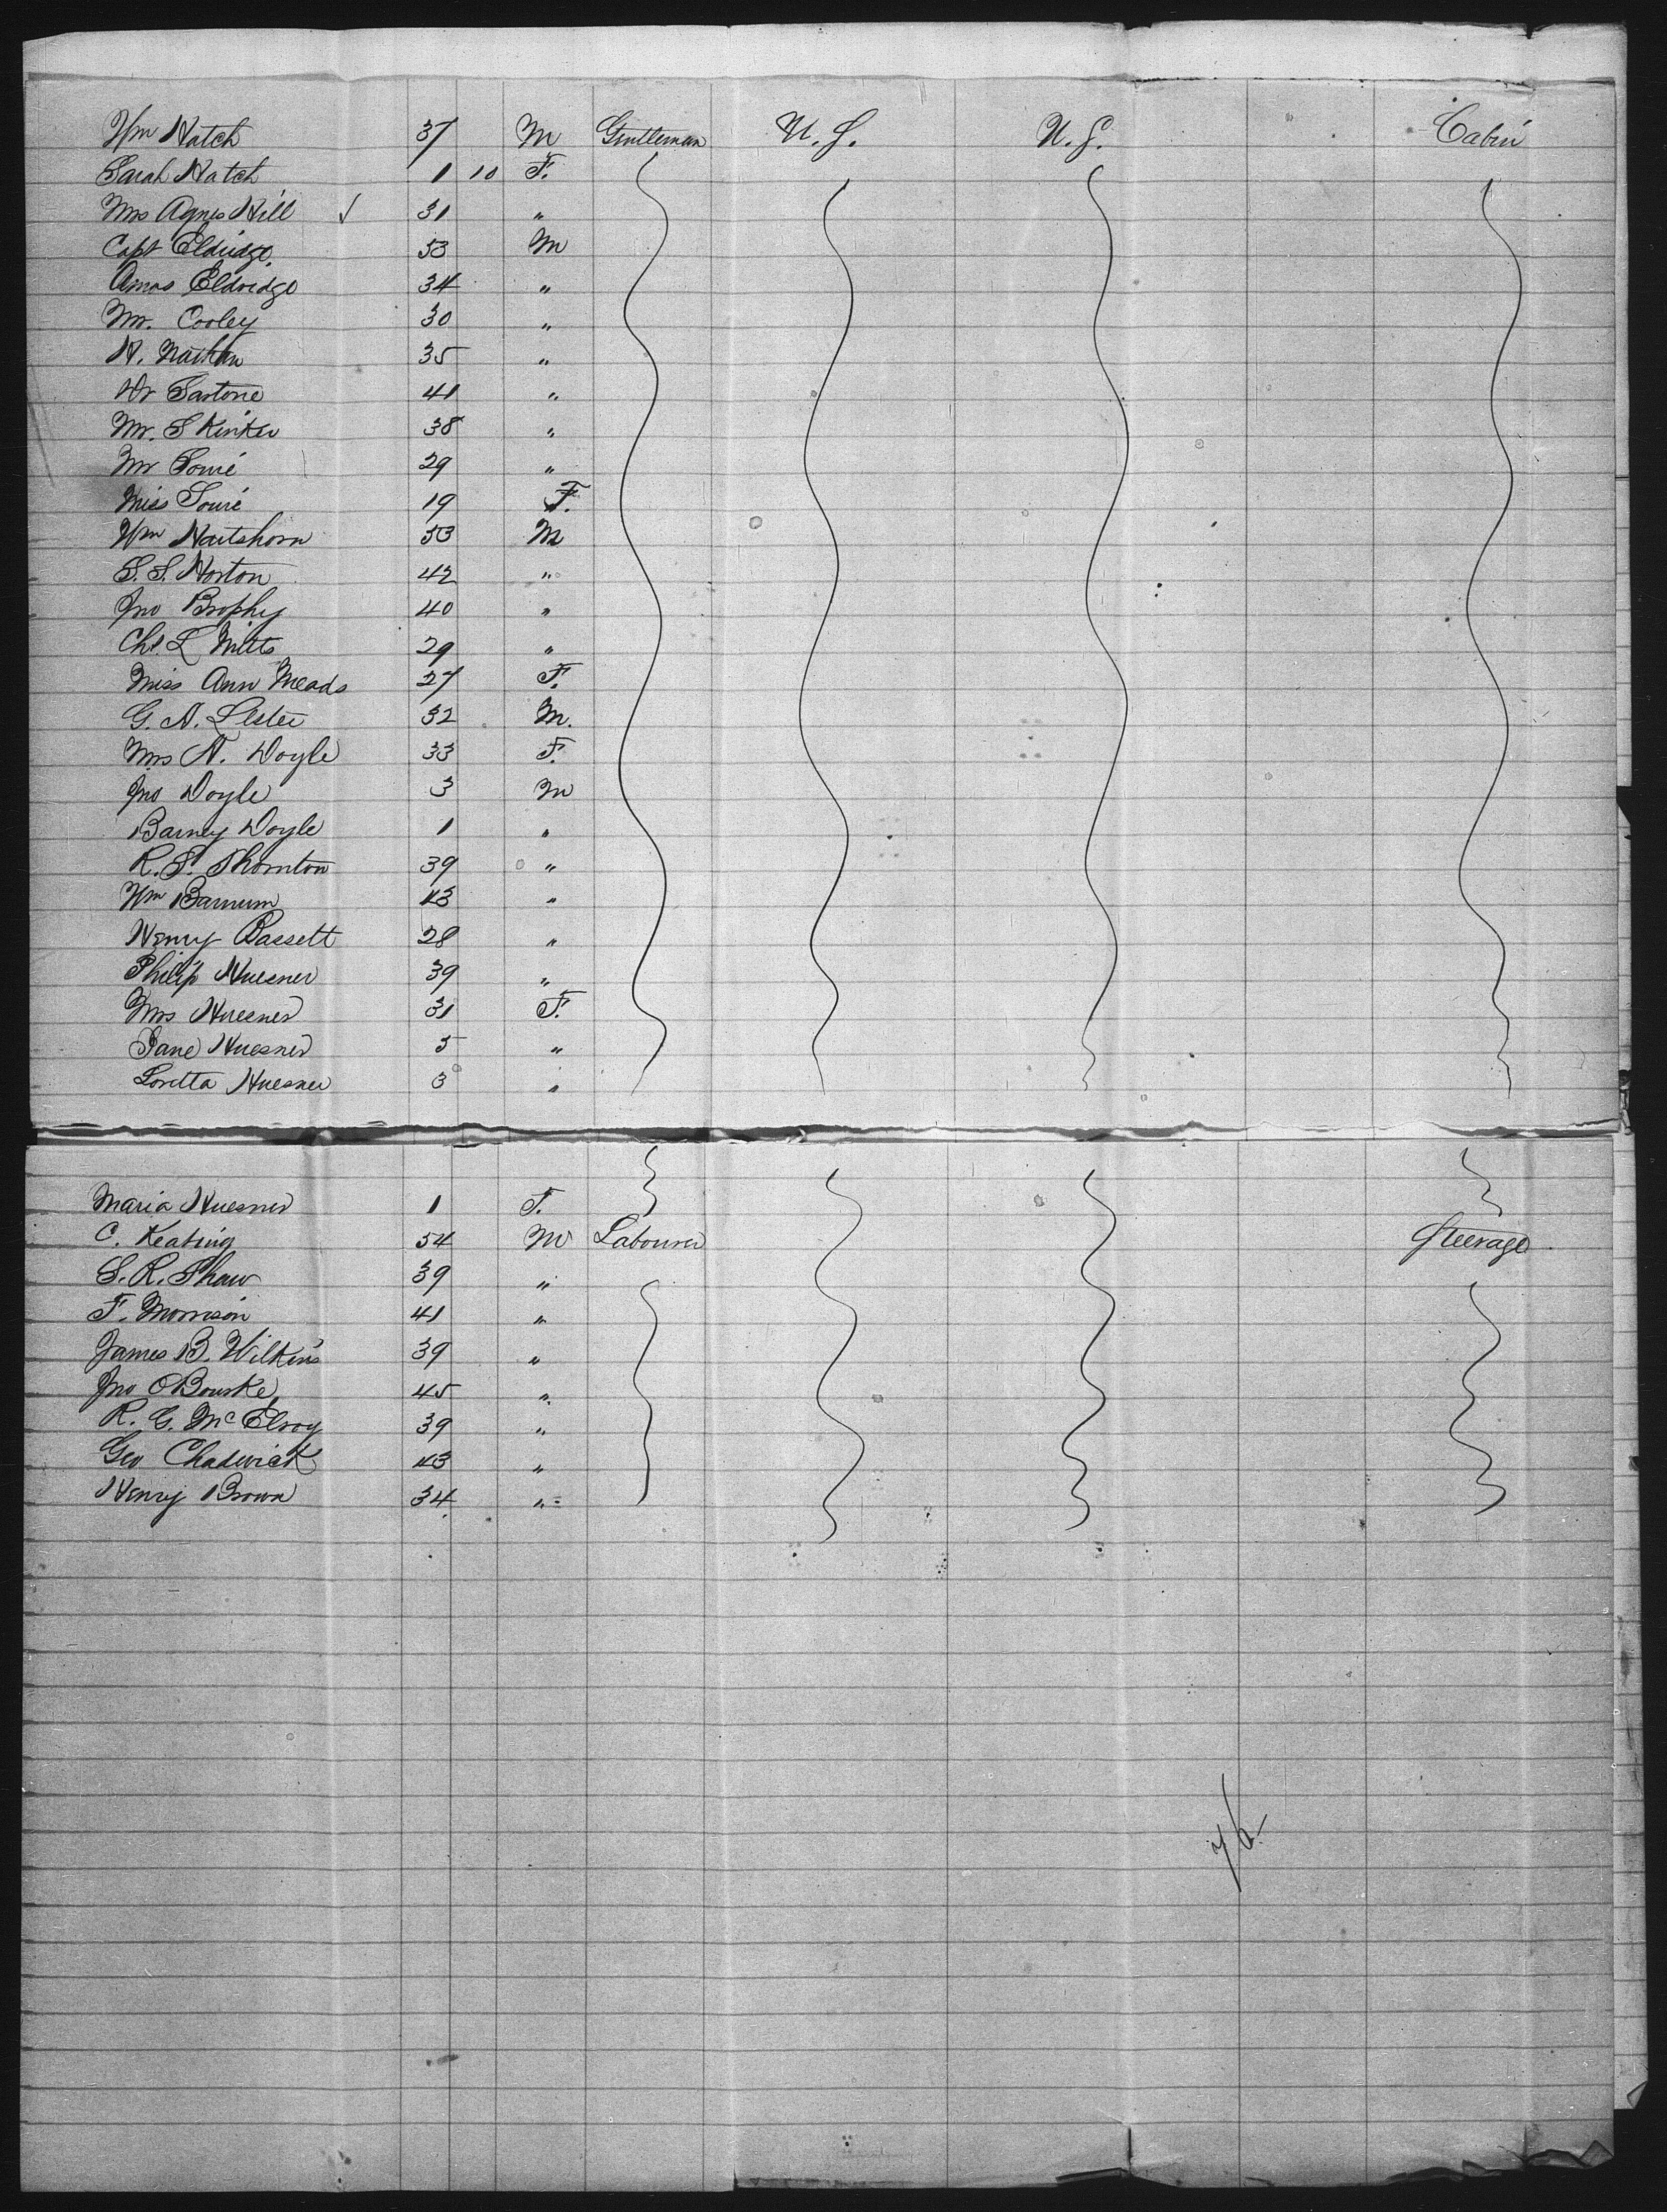 Wm Hatch 37 M Gentleman U.S. U.S. Cabin
Sarah Hatch 1 10 F.
Mrs Agnes Hill ✓ 31 "
Capt Eldridge. 53 M
Amos Eldridge 34 "
Mr. Cooley 30 "
H. Nathan 35 "
Dr Sartorie 41 "
Mr. Skinker 38 "
Mr Sourié 29 "
Miss Sourié 19 F.
Wm Hartshorn 53 M
S. S. Horton 42 "
Jno Brophy 40 "
Chs. L Mitts 29 "
Miss Ann Meads 27 F.
G. A. Lester 32 M.
Mrs A. Doyle 33 F.
Jno Doyle 3 M
Barney Doyle 1 "
R. S. Thornton 39 "
Wm Barnum 43 "
Henry Bassett 28 "
Philip Huesner 39 "
Mrs Huesner 31 F.
Jane Huesner 5 "
Loretta Huesner 3 "
Maria Huesner 1 F.
C. Keating 54 M Labourer Steerage
S. R. Shaw 39 "
F. Morrison 41 "
James B. Wilkins 39 "
Jno O'Bourke 45 "
R. G. McElroy 39 "
Geo Chadwick 43 "
Henry Brown 34 "